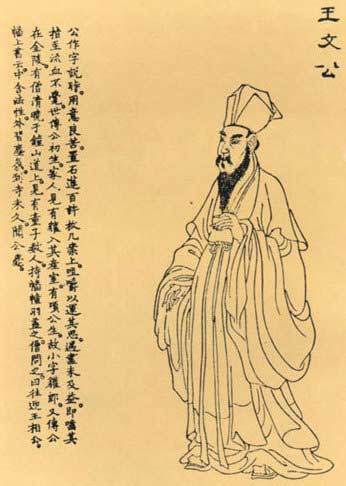 王文公
公作字說時。用意良苦。置石蓮百許枚几案上。咀嚼以運其思。遇盡未及益。即嚙其
指至流血不覺。世傳公初生。家人見有獾入其產室。有頃公生。故小字獾郎。又傳公
在金陵有僧清曉于鐘山道上。見有童子數人。持幡幢羽蓋之僧問之。曰往迎王相公。
幡上書云。中含法性。外習塵氛。到寺未久聞公薨。